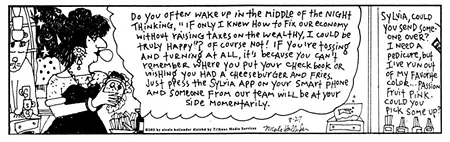 Do you often wake up in the middle of the night
thinking, "If only I knew how to fix our economy
without raising taxes on the wealthy, I could be
truly happy"? Of course not! If you're tossing
and turning at all, it's because you can't
remember where you put your check book or
wishing you had a cheeseburger and fries.
Just press the Sylvia app on your smart phone
and someone from our team will be at your
side momentarily.
8-27
©2012 by nicole hollander distrib by Tribune Media Services
Sylvia, could
you send some-
one over?
I need a
pedicure, but
I've run out
of my favorite
color... passion
fruit pink.
Could you
pick some up?